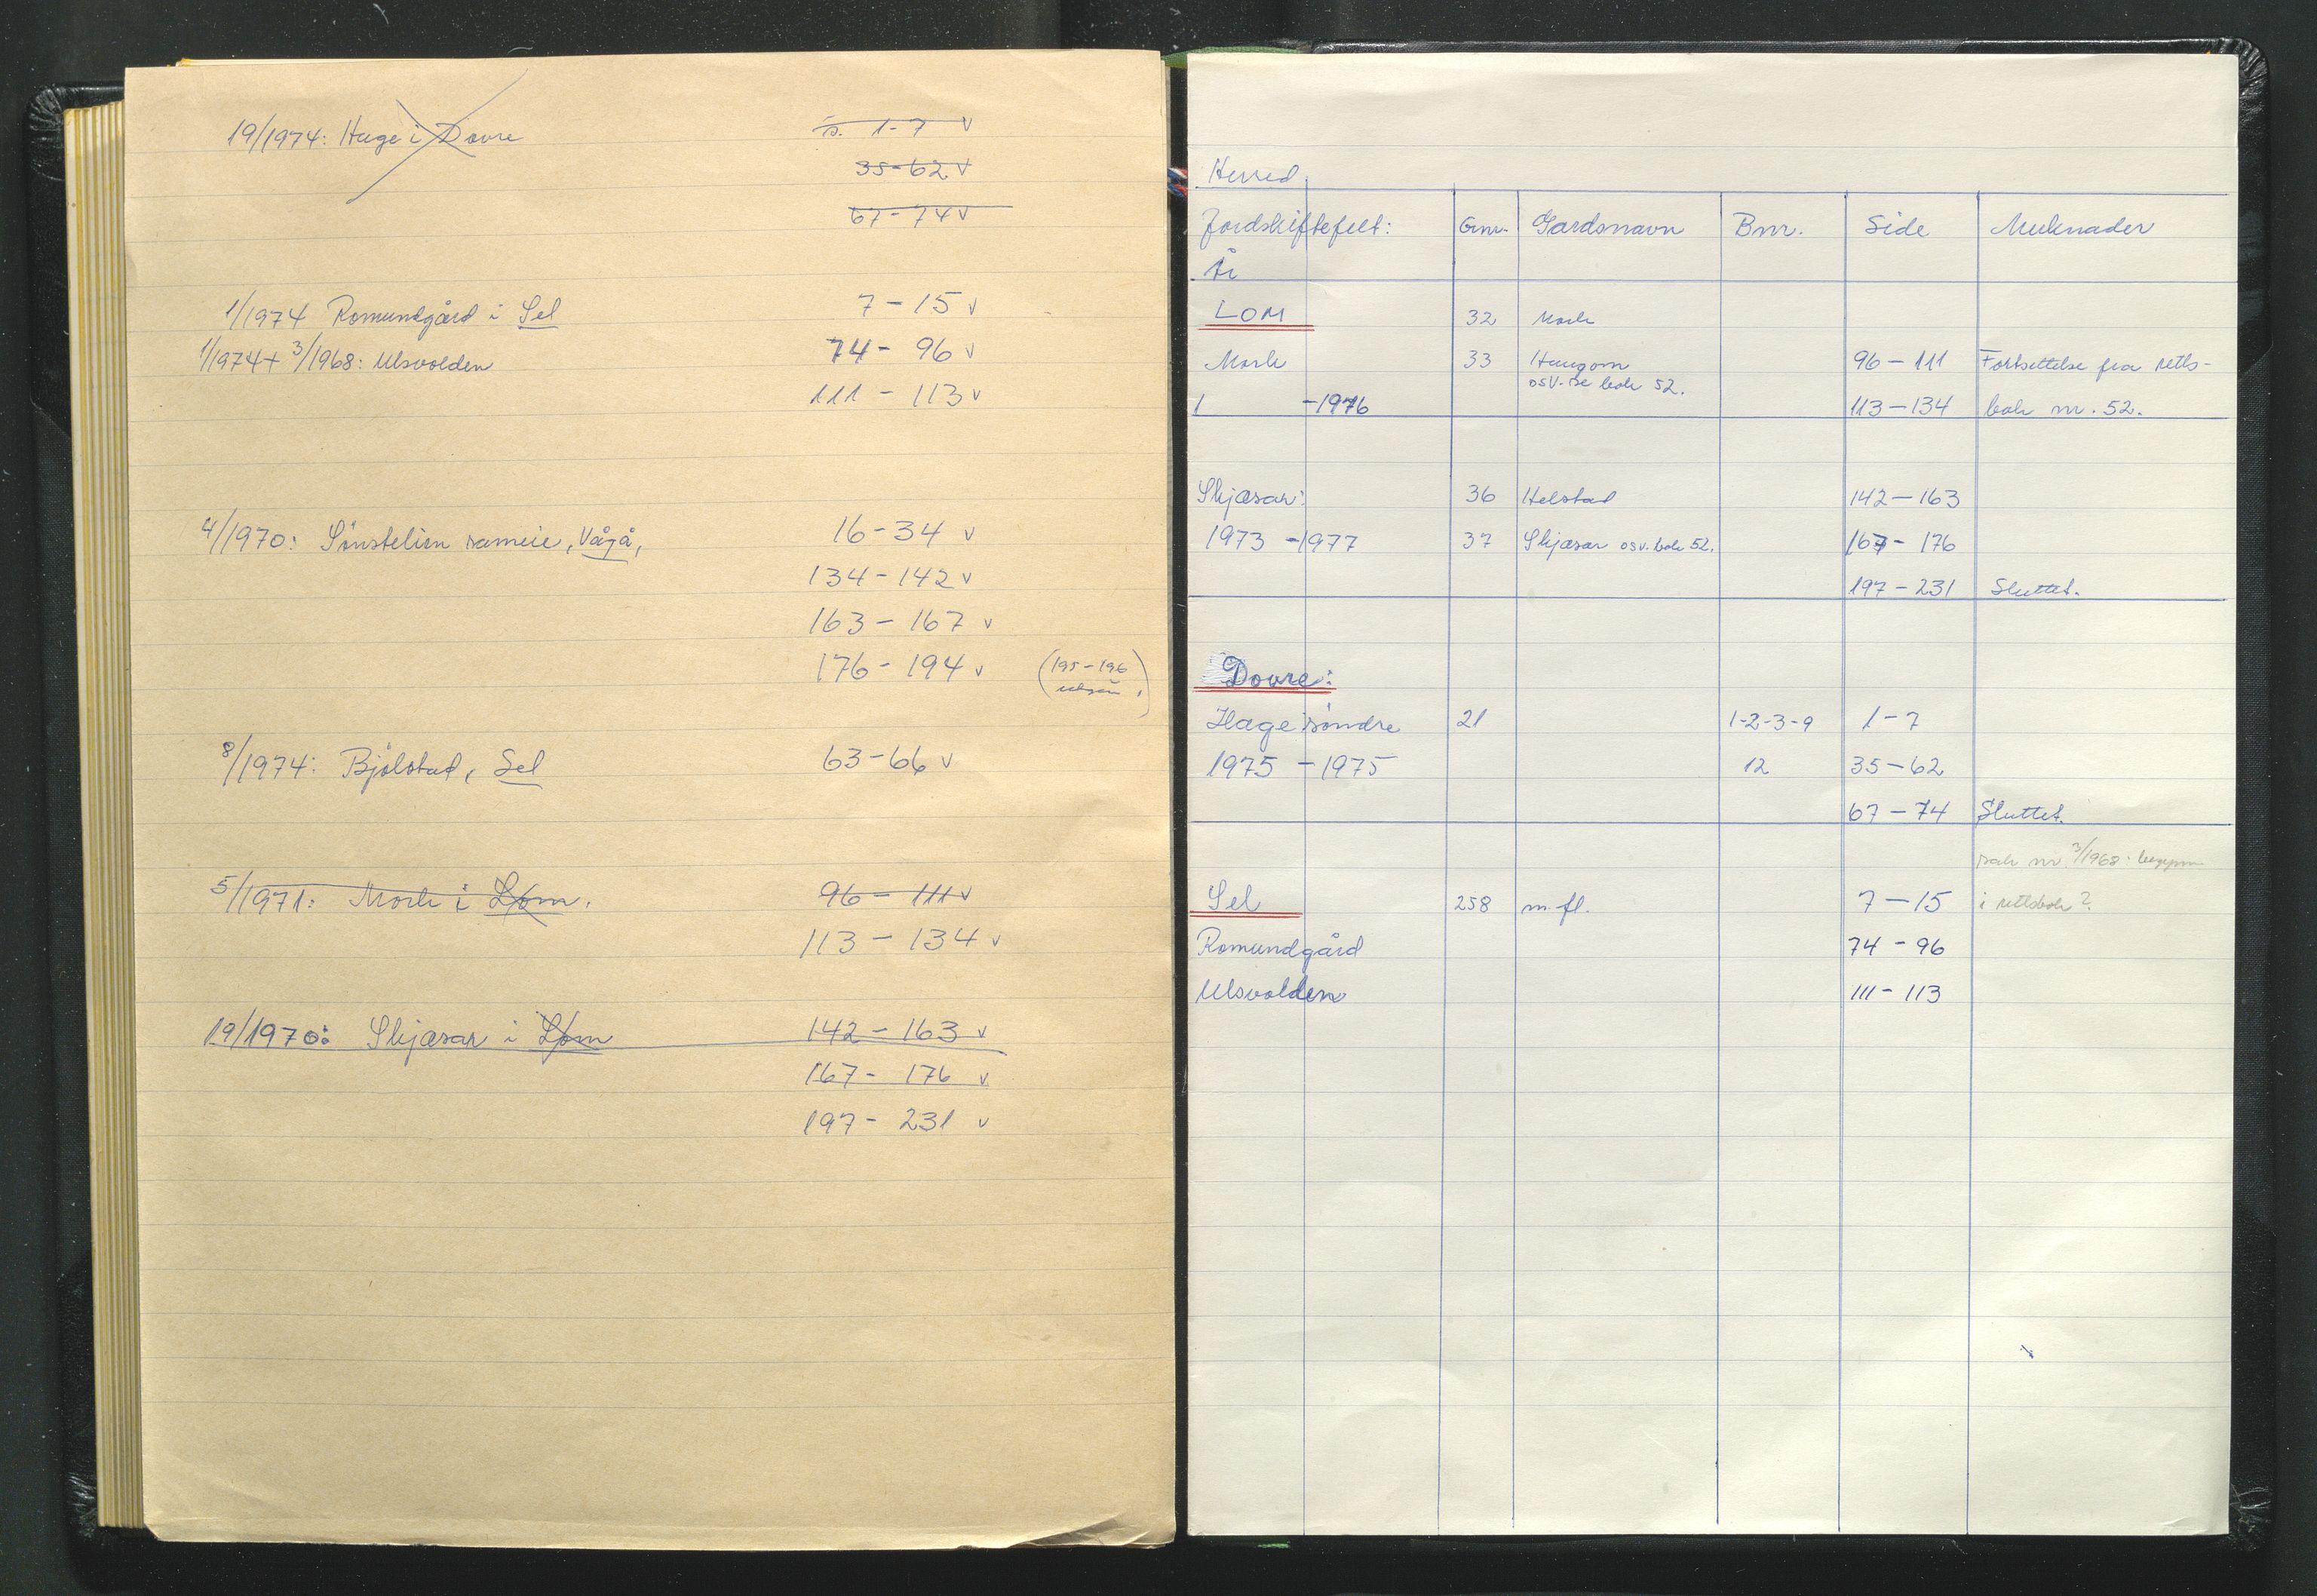 19/1974: Hage i Dovre s. 1-7 v
35-62 v
67-74 v
1/1974 Romundgård i Sel 7-15 v
1/1974 + 3/1968: Ulsvolden 74-96 v
111-113 v
4/1970: Sönstelien sameie, Vågå, 16-34 v
134-142 v
163-167 v
176-194 v (195-196
8/1974: Bjölstad, Sel 63-66 v
5/1971: Mork i Lom. 96-111 v
113-134 v
19/1970: Skjæsar i Lom 142-163 v
167-176 v
197-231 v
Herred
Jordskiftefelt: Gnr. Gardsnavn Bnr. Side Merknader
År
LOM 32 Mork
Mork 33 Haugom 96-111 Fortsettelse fra retts-
osv. se bok 52.
1 -1976 113-134 bok nr. 52.
Skjæsar: 36 Helstad 142-163
1973-1977 37 Skjæsar osv. bok 52. 167-176
197-231 Sluttet.
Dovre:
Hage söndre 21 1-2-3-9 1-7
1975-1975 12 35-62
67-74 Sluttet.
sak nr. 3/1968
Sel 258 m. fl. 7-15 i rettsbok?
Romundgård 74-96
Ulsvolden 111-113